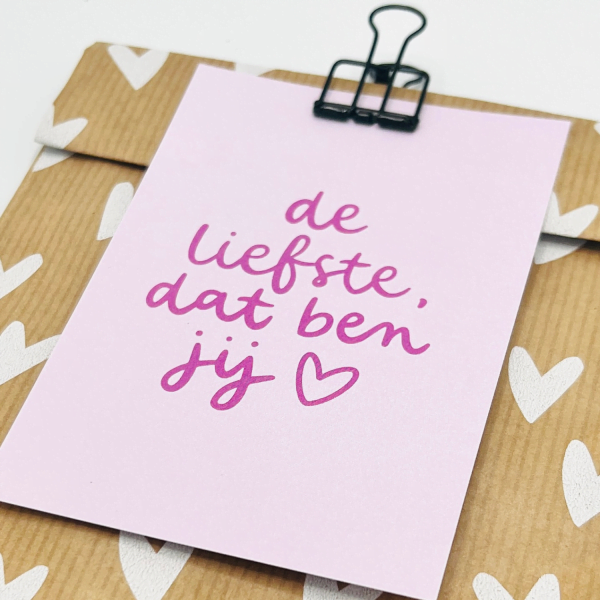 de
liefste,
dat ben
jij